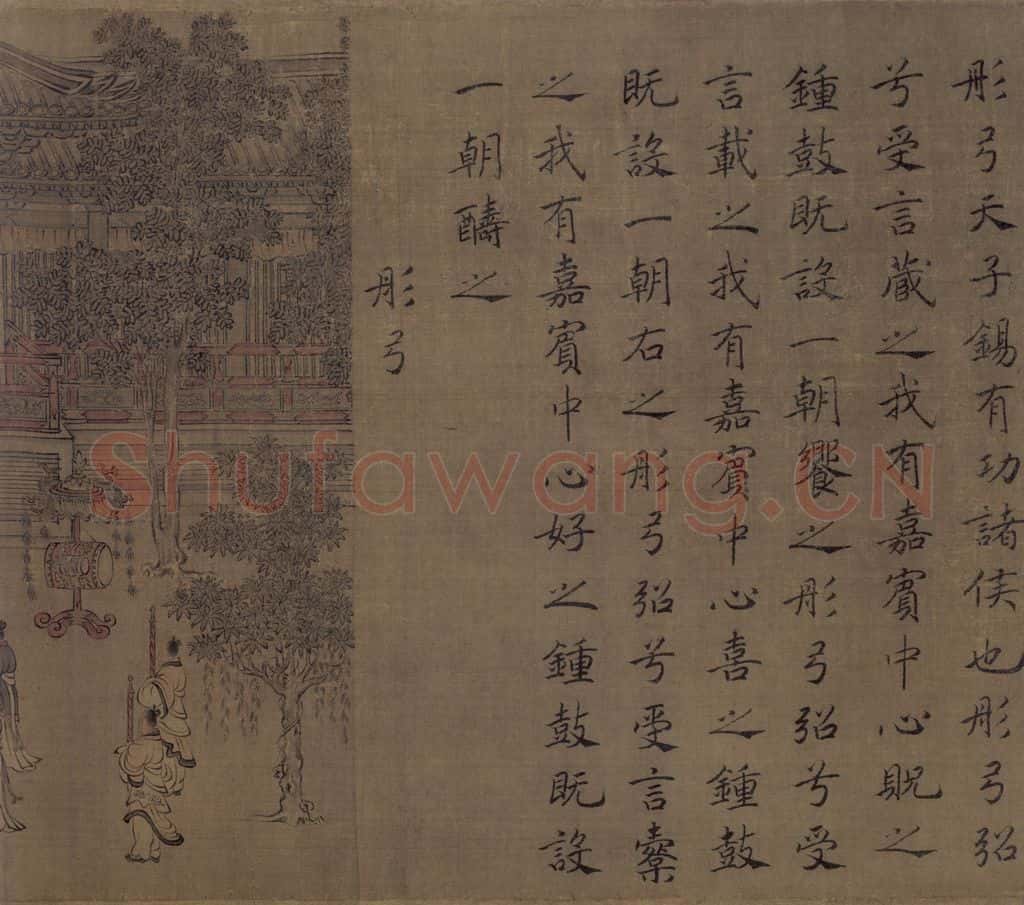 彤弓天子錫有功諸侯也彤弓弨
兮受言藏之我有嘉賓中心貺之
鍾鼓既設一朝饗之彤弓弨兮受
言載之我有嘉賓中心喜之鍾鼓
既設一朝右之彤弓弨兮受言櫜
之我有嘉賓中心好之鍾鼓既設
一朝醻之
彤弓
Shufawang.CN